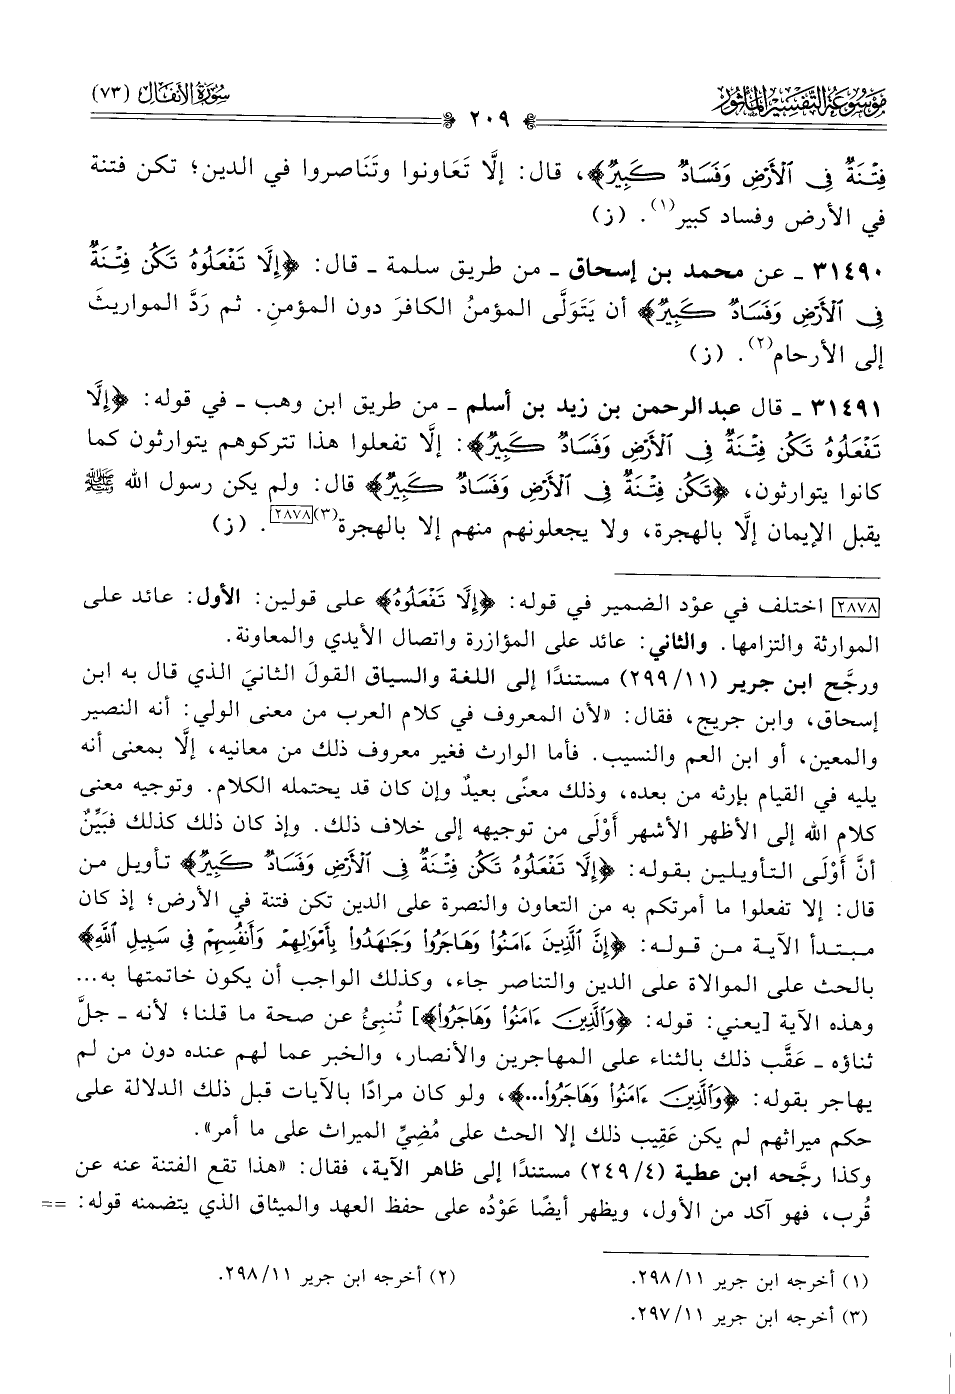 موسوعة التفسير المأثور
سورة الأنفال (٧٣)
٢٠٩
فِتْنَةٌ فِى ٱلْأَرْضِ وَفَسَادٌ كَبِيرٌ﴾، قال: إلَّا تَعَاونوا وتَناصروا في الدين؛ تكن فتنة
في الأرض وفساد كبير(١). (ز)
٣١٤٩٠ ـ عن محمد بن إسحاق ـ من طريق سلمة ـ قال: ﴿إِلَّا تَفْعَلُوهُ تَكُن فِتْنَةٌ
فِى ٱلْأَرْضِ وَفَسَادٌ كَبِيرٌ﴾ أن يَتَوَلَّى المؤمنُ الكافرَ دون المؤمنِ. ثم رَدَّ المواريثَ
إلى الأرحام(٢). (ز)
٣١٤٩١ ـ قال عبدالرحمن بن زيد بن أسلم ـ من طريق ابن وهب ـ في قوله: ﴿إِلَّا
تَفْعَلُوهُ تَكُن فِتْنَةٌ فِى ٱلْأَرْضِ وَفَسَادٌ كَبِيرٌ﴾: إلَّا تفعلوا هذا تتركوهم يتوارثون كما
كانوا يتوارثون، ﴿تَكُن فِتْنَةٌ فِى ٱلْأَرْضِ وَفَسَادٌ كَبِيرٌ﴾ قال: ولم يكن رسول الله ﷺ
يقبل الإيمان إلَّا بالهجرة، ولا يجعلونهم منهم إلا بالهجرة(٣)٢٨٧٨. (ز)
٢٨٧٨ اختلف في عوْد الضمير في قوله: ﴿إِلَّا تَفْعَلُوهُ﴾ على قولين: الأول: عائد على
الموارثة والتزامها. والثاني: عائد على المؤازرة واتصال الأيدي والمعاونة.
ورجَّح ابن جرير (١١/ ٢٩٩) مستندًا إلى اللغة والسياق القولَ الثانيَ الذي قال به ابن
إسحاق، وابن جريج، فقال: «لأن المعروف في كلام العرب من معنى الولي: أنه النصير
والمعين، أو ابن العم والنسيب. فأما الوارث فغير معروف ذلك من معانيه، إلَّا بمعنى أنه
يليه في القيام بإرثه من بعده، وذلك معنًى بعيدٌ وإن كان قد يحتمله الكلام. وتوجيه معنى
كلام الله إلى الأظهر الأشهر أَوْلَى من توجيهه إلى خلاف ذلك. وإذ كان ذلك كذلك فبَيِّنٌ
أنَّ أَوْلَى التأويلين بقوله: ﴿إِلَّا تَفْعَلُوهُ تَكُن فِتْنَةٌ فِى ٱلْأَرْضِ وَفَسَادٌ كَبِيرٌ﴾ تأويل من
قال: إلا تفعلوا ما أمرتكم به من التعاون والنصرة على الدين تكن فتنة في الأرض؛ إذ كان
مبتدأ الآية من قوله: ﴿إِنَّ ٱلَّذِينَ ءَامَنُوا۟ وَهَاجَرُوا۟ وَجَٰهَدُوا۟ بِأَمْوَٰلِهِمْ وَأَنفُسِهِمْ فِى سَبِيلِ ٱللَّهِ﴾
بالحث على الموالاة على الدين والتناصر جاء، وكذلك الواجب أن يكون خاتمتها به...
وهذه الآية [يعني: قوله: ﴿وَٱلَّذِينَ ءَامَنُوا۟ وَهَاجَرُوا۟﴾] تُنبِئُ عن صحة ما قلنا؛ لأنه ـ جلَّ
ثناؤه ـ عَقَّب ذلك بالثناء على المهاجرين والأنصار، والخبر عما لهم عنده دون من لم
يهاجر بقوله: ﴿وَٱلَّذِينَ ءَامَنُوا۟ وَهَاجَرُوا۟...﴾، ولو كان مرادًا بالآيات قبل ذلك الدلالة على
حكم ميراثهم لم يكن عَقِيب ذلك إلا الحث على مُضِيِّ الميراث على ما أمر».
وكذا رجَّحه ابن عطية (٤/ ٢٤٩) مستندًا إلى ظاهر الآية، فقال: «هذا تقع الفتنة عنه عن
قُرب، فهو آكد من الأول، ويظهر أيضًا عَوْدُه على حفظ العهد والميثاق الذي يتضمنه قوله: ==
(١) أخرجه ابن جرير ١١/ ٢٩٨.
(٢) أخرجه ابن جرير ١١/ ٢٩٨.
(٣) أخرجه ابن جرير ١١/ ٢٩٧.